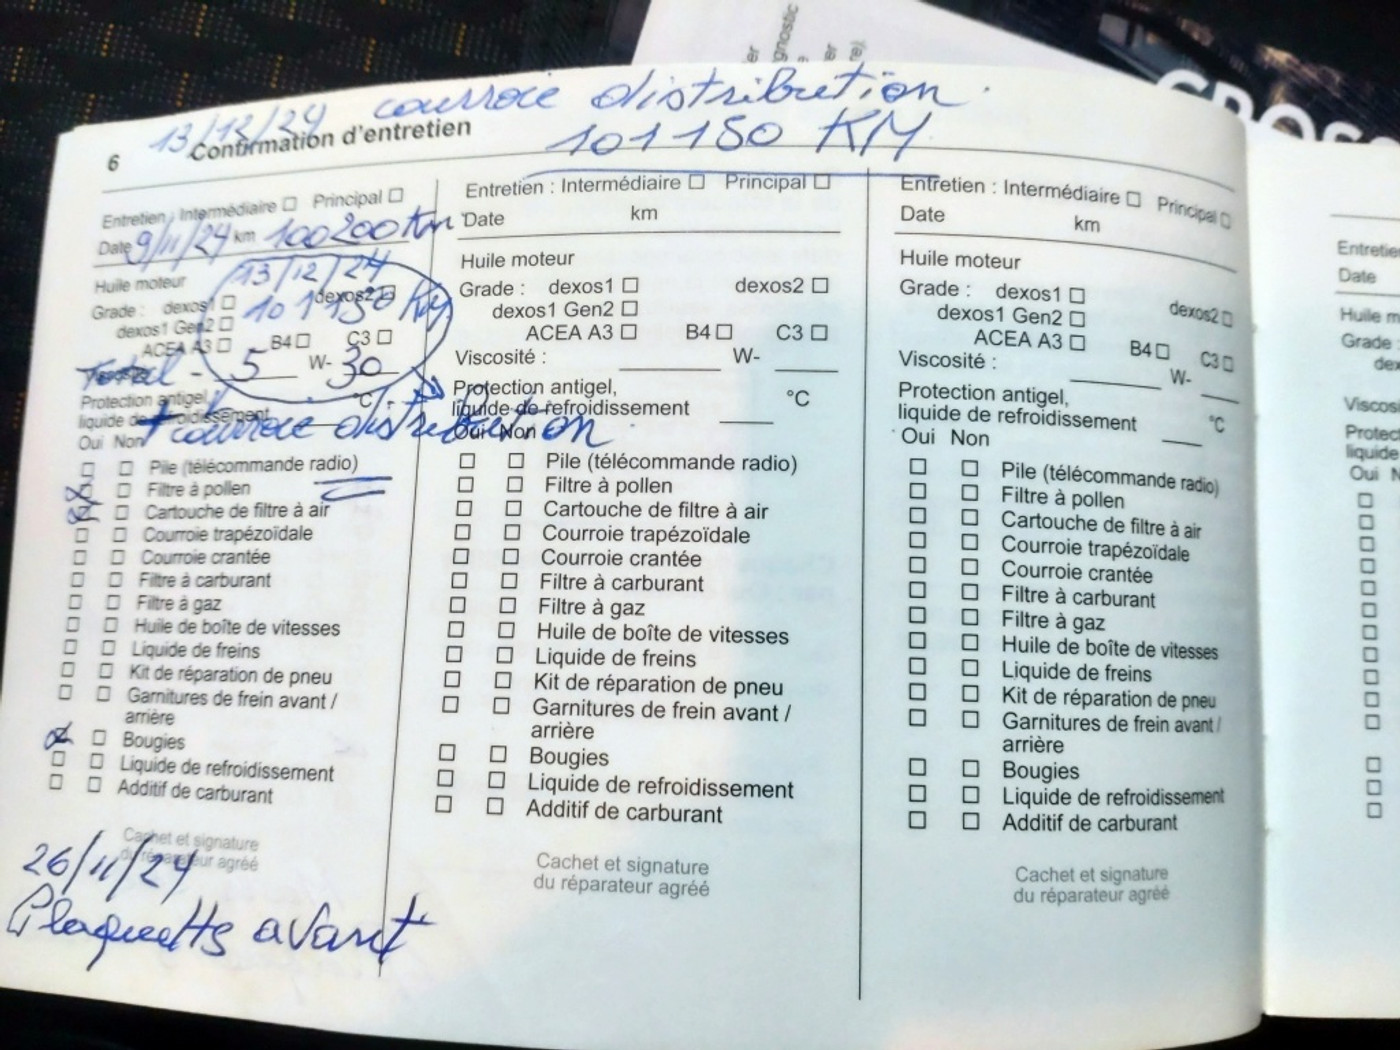 gnostic
CROSS
13/12/24 courroie distribution.
6 Confirmation d'entretien
101150 KM
Entretien : Intermédiaire ☐ Principal ☐
Date 9/11/24 km 100200 Km
Huile moteur
13/12/24
Grade : dexos1 ☐ dexos2 ☐
101150 Km
dexos1 Gen2 ☐
ACEA A3 ☐ B4 ☐ C3 ☐
Total - 5 W- 30
Protection antigel,
liquide de refroidissement °C
+ courroie distribution.
Oui Non
☐ ☐ Pile (télécommande radio)
☒ ☐ Filtre à pollen
☒ ☐ Cartouche de filtre à air
☐ ☐ Courroie trapézoïdale
☐ ☐ Courroie crantée
☐ ☐ Filtre à carburant
☐ ☐ Filtre à gaz
☐ ☐ Huile de boîte de vitesses
☐ ☐ Liquide de freins
☐ ☐ Kit de réparation de pneu
☐ ☐ Garnitures de frein avant /
arrière
☒ ☐ Bougies
☐ ☐ Liquide de refroidissement
☐ ☐ Additif de carburant
Cachet et signature
du réparateur agréé
26/11/24
Plaquetts avant
Entretien : Intermédiaire ☐ Principal ☐
Date km
Huile moteur
Grade : dexos1 ☐ dexos2 ☐
dexos1 Gen2 ☐
ACEA A3 ☐ B4 ☐ C3 ☐
Viscosité : W-
Protection antigel, °C
liquide de refroidissement
Oui Non
☐ ☐ Pile (télécommande radio)
☐ ☐ Filtre à pollen
☐ ☐ Cartouche de filtre à air
☐ ☐ Courroie trapézoïdale
☐ ☐ Courroie crantée
☐ ☐ Filtre à carburant
☐ ☐ Filtre à gaz
☐ ☐ Huile de boîte de vitesses
☐ ☐ Liquide de freins
☐ ☐ Kit de réparation de pneu
☐ ☐ Garnitures de frein avant /
arrière
☐ ☐ Bougies
☐ ☐ Liquide de refroidissement
☐ ☐ Additif de carburant
Cachet et signature
du réparateur agréé
Entretien : Intermédiaire ☐ Principal ☐
Date km
Huile moteur
Grade : dexos1 ☐ dexos2 ☐
dexos1 Gen2 ☐
ACEA A3 ☐ B4 ☐ C3 ☐
Viscosité : W-
Protection antigel,
liquide de refroidissement °C
Oui Non
☐ ☐ Pile (télécommande radio)
☐ ☐ Filtre à pollen
☐ ☐ Cartouche de filtre à air
☐ ☐ Courroie trapézoïdale
☐ ☐ Courroie crantée
☐ ☐ Filtre à carburant
☐ ☐ Filtre à gaz
☐ ☐ Huile de boîte de vitesses
☐ ☐ Liquide de freins
☐ ☐ Kit de réparation de pneu
☐ ☐ Garnitures de frein avant /
arrière
☐ ☐ Bougies
☐ ☐ Liquide de refroidissement
☐ ☐ Additif de carburant
Cachet et signature
du réparateur agréé
Entretie
Date
Huile m
Grade :
dex
Viscos
Protec
liquide
Oui N